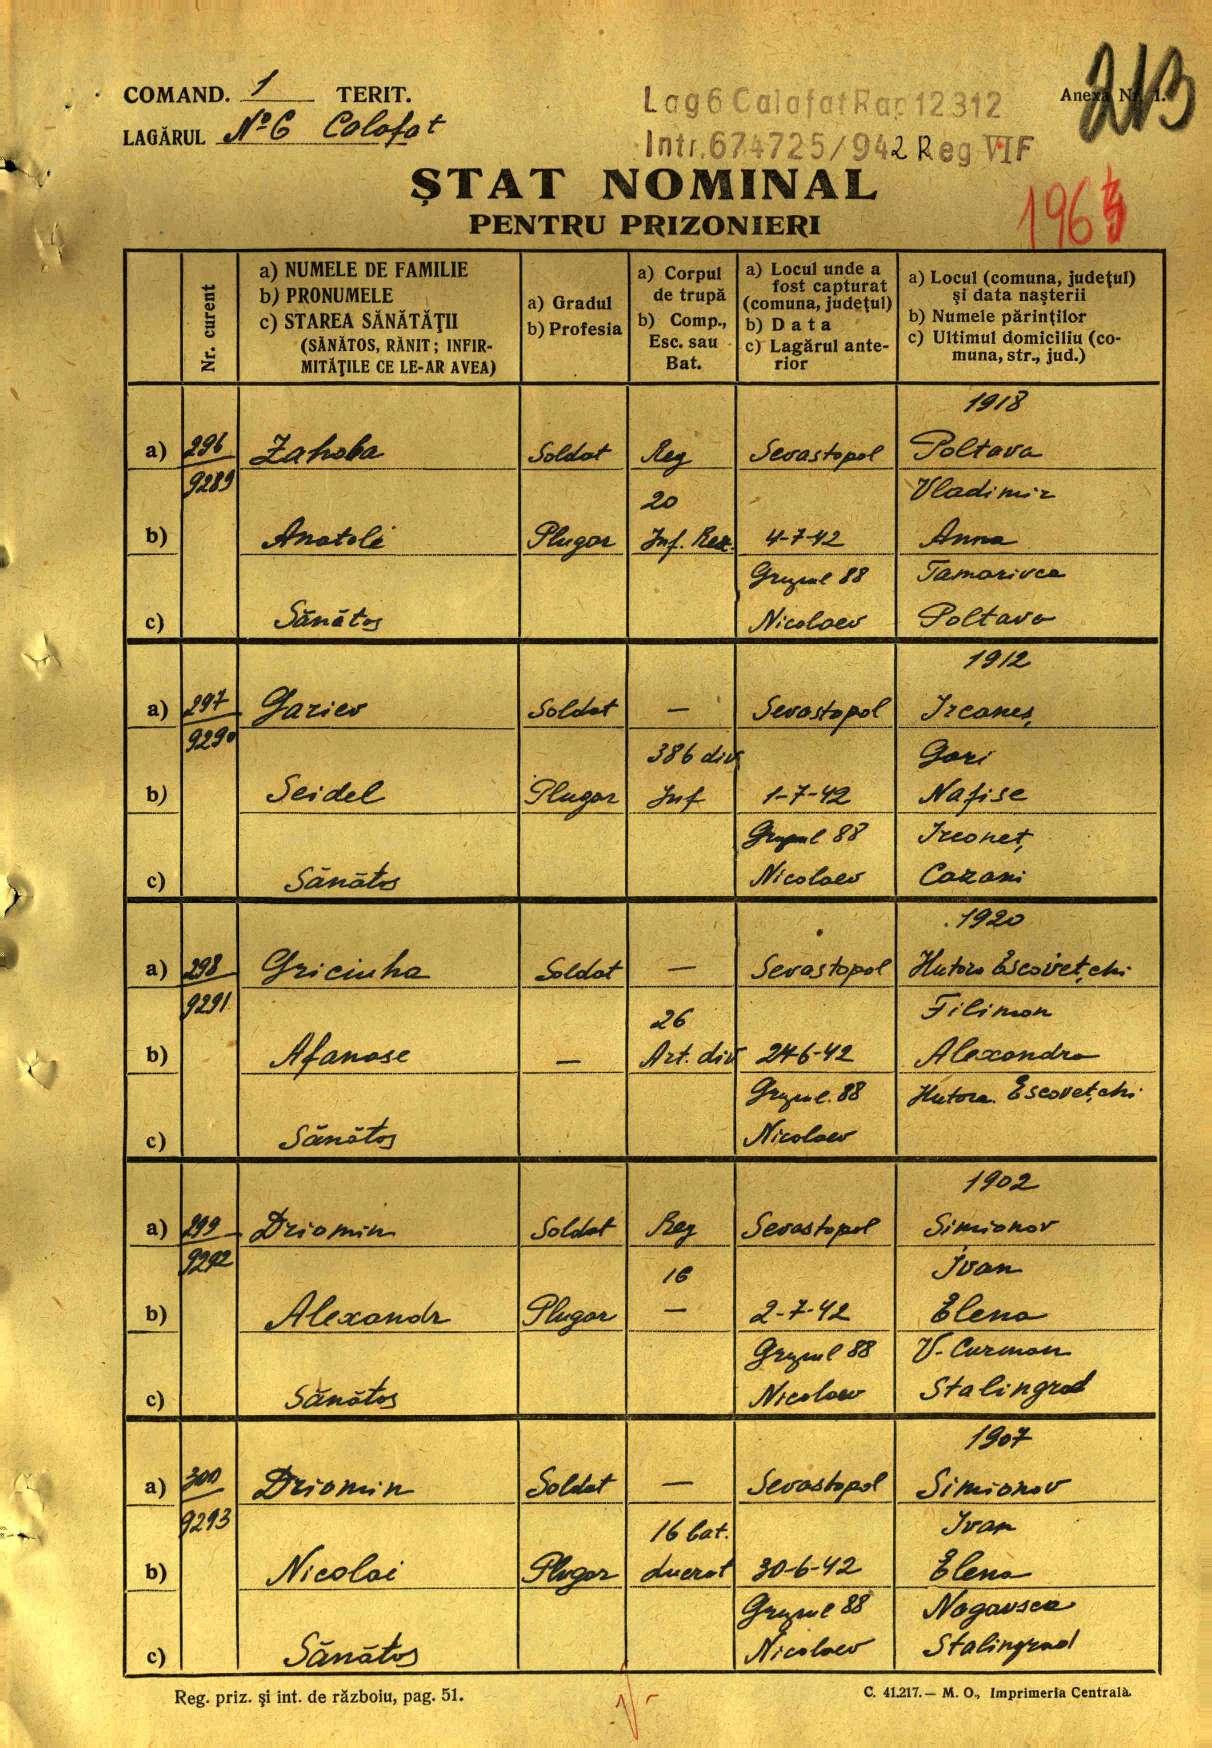 COMAND. 1 TERIT.
LAGĂRUL No 6 Calafat
Lag 6 Calafat Rap 12312
Intr. 674725/942 Reg VII F
Anexa Nr. 1.
213
ȘTAT NOMINAL
PENTRU PRIZONIERI
196
Nr. curent
a) NUMELE DE FAMILIE
b) PRONUMELE
c) STAREA SĂNĂTĂȚII
(SĂNĂTOS, RĂNIT; INFIR-
MITĂȚILE CE LE-AR AVEA)
a) Gradul
b) Profesia
a) Corpul
de trupă
b) Comp.,
Esc. sau
Bat.
a) Locul unde a
fost capturat
(comuna, județul)
b) Data
c) Lagărul ante-
rior
a) Locul (comuna, județul)
și data nașterii
b) Numele părinților
c) Ultimul domiciliu (co-
muna, str., jud.)
1918
a) 296 Zahoba Soldat Reg Sevastopol Poltava
9289 20 Vladimir
b) Anatole Plugar Inf. Rez. 4-7-42 Anna
Grupul 88 Tamarivca
c) Sănătos Nicolaev Poltava
1912
a) 297 Gariev Soldat — Sevastopol Ircaneș
9290 386 div. Gari
b) Seidel Plugar Inf 1-7-42 Nafise
Grupul 88 Irconeț,
c) Sănătos Nicolaev Cazani
1920
a) 298 Griciuha Soldat — Sevastopol Hutora Escovețchi
9291 26 Filimon
b) Afanase — Art. div. 24-6-42 Alexandra
Grupul. 88 Hutora. Escovețchi
c) Sănătos Nicolaev
1902
a) 299 Driomin Soldat Reg Sevastopol Simionov
9292 16 Ivan
b) Alexandr Plugar — 2-7-42 Elena
Grupul 88 V. Curman
c) Sănătos Nicolaev Stalingrad
1907
a) 300 Driomin Soldat — Sevastopol Simionov
9293 16 bat. Ivan
b) Nicolai Plugar lucrat 30-6-42 Elena
Grupul 88 Nagavsca
c) Sănătos Nicolaev Stalingrad
Reg. priz. și int. de războiu, pag. 51.
C. 41.217.— M. O., Imprimeria Centrală.